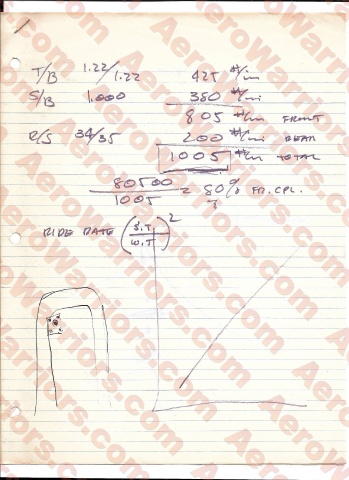 T/B 1.22/1.22 425 #/in
S/B 1.000 380 #/in
805 #/in FRONT
R/S 34/35 200 #/in REAR
1005 #/in TOTAL
80500
1005 = 80% FR.CPL.
RIDE RATE (S.T./W.T)²
AeroWarriors.com